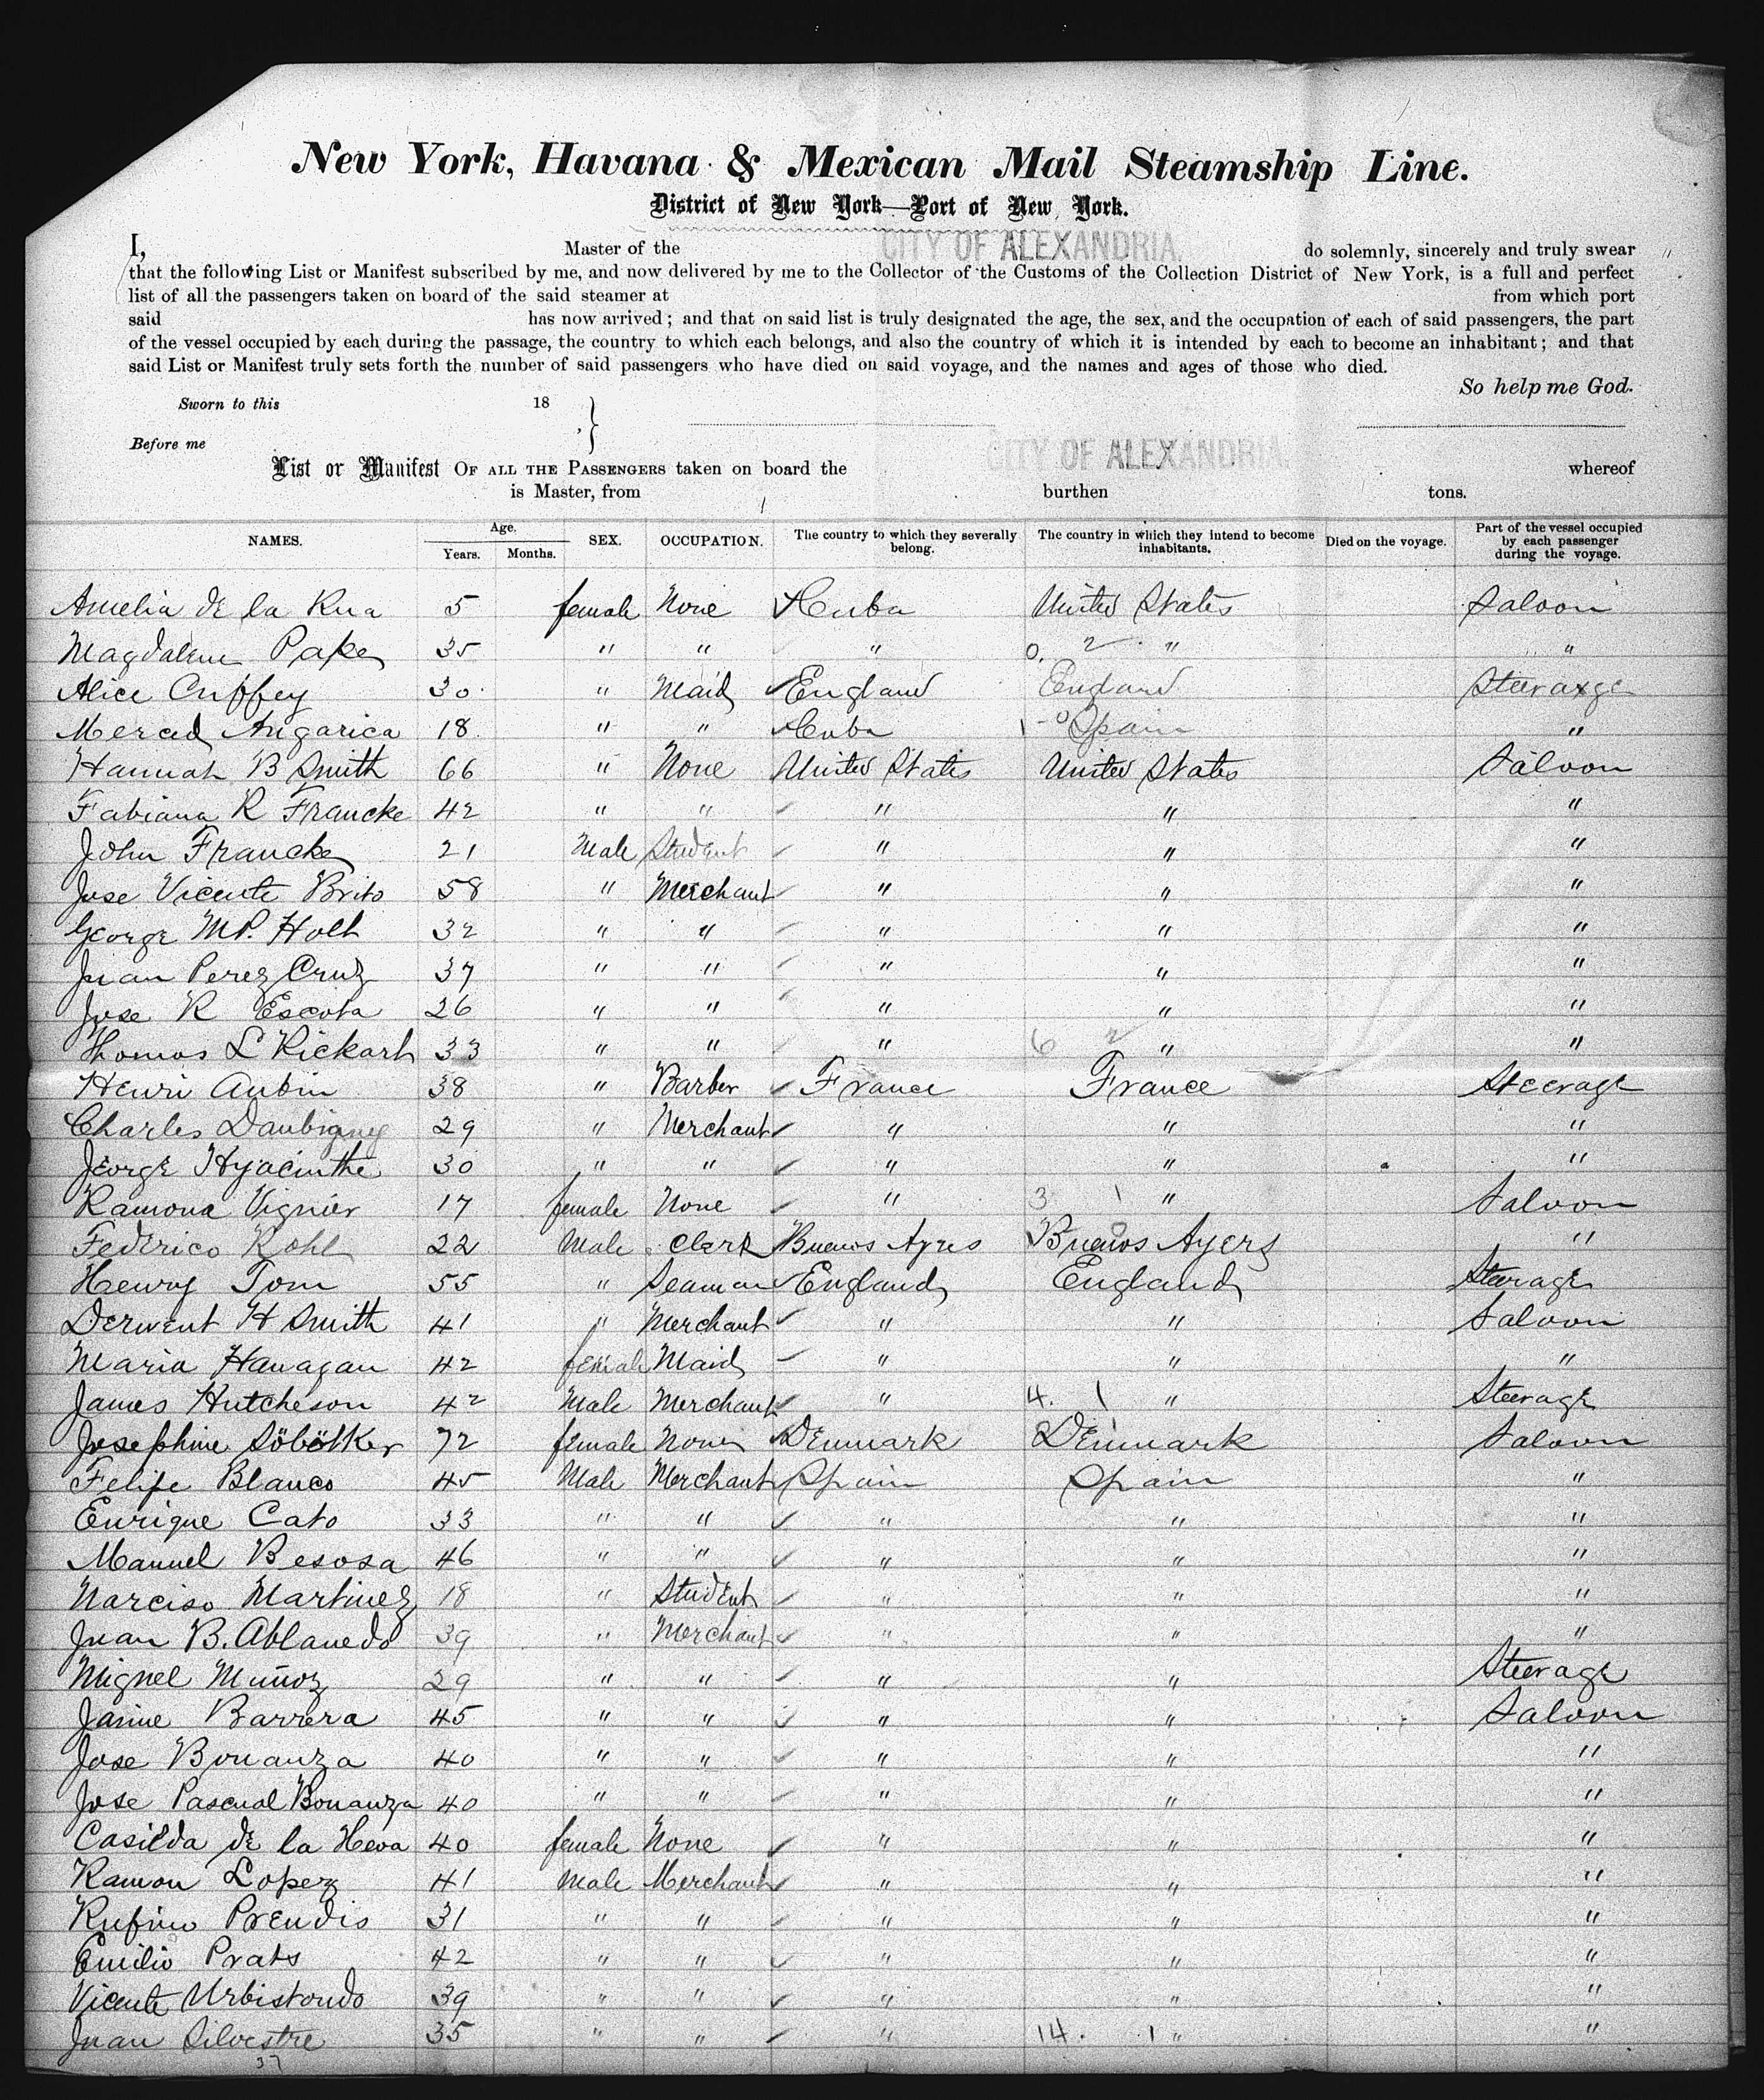 New York, Havana & Mexican Mail Steamship Line.
District of New York—Port of New York.
I, Master of the CITY OF ALEXANDRIA. do solemnly, sincerely and truly swear
that the following List or Manifest subscribed by me, and now delivered by me to the Collector of the Customs of the Collection District of New York, is a full and perfect
list of all the passengers taken on board of the said steamer at from which port
said has now arrived; and that on said list is truly designated the age, the sex, and the occupation of each of said passengers, the part
of the vessel occupied by each during the passage, the country to which each belongs, and also the country of which it is intended by each to become an inhabitant; and that
said List or Manifest truly sets forth the number of said passengers who have died on said voyage, and the names and ages of those who died.
So help me God.
Sworn to this 18
Before me
List or Manifest OF ALL THE PASSENGERS taken on board the CITY OF ALEXANDRIA. whereof
is Master, from burthen tons.
NAMES. Age. Years. Months. SEX. OCCUPATION. The country to which they severally belong. The country in which they intend to become inhabitants. Died on the voyage. Part of the vessel occupied by each passenger during the voyage.
Amelia de la Rua 5 female None Cuba United States Saloon
Magdalena Pape 35 " " " 0. 2 " "
Alice Cuffey 30 " Maid England England Steerage
Merced Angarica 18 " " Cuba 1 - 0 Spain "
Hannah B Smith 66 " None United States United States Saloon
Fabiana R Francke 42 " " " " "
John Francke 21 Male Student " " "
Jose Vicente Brito 58 " Merchant " " "
George MP. Holt 32 " " " " "
Juan Perez Cruz 37 " " " " "
Jose R Escota 26 " " " " "
Thomas L Rickart 33 " " " 6 2 " "
Henri Aubin 38 " Barber France France Steerage
Charles Daubigny 29 " Merchant " " "
Jeorge Hyacinthe 30 " " " " "
Ramona Vignier 17 female None " 3 1 " Saloon
Federico Kohl 22 Male Clerk Buenos Ayres Buenos Ayers "
Henry Tom 55 " Seaman England England Steerage
Derwent H Smith 41 " Merchant " " Saloon
Maria Hanagan 42 female Maid " " "
James Hutcheson 42 Male Merchant " 4. 1 " Steerage
Josephine Söbötker 72 female None Denmark Denmark Saloon
Felipe Blanco 45 Male Merchant Spain Spain "
Enrique Cato 33 " " " " "
Manuel Besosa 46 " " " " "
Narciso Martinez 18 " Student " " "
Juan B. Ablanedo 39 " Merchant " " "
Miguel Muñoz 29 " " " " Steerage
Jaime Barrera 45 " " " " Saloon
Jose Bonanza 40 " " " " "
Jose Pascual Bonanza 40 " " " " "
Casilda de la Heva 40 female None " " "
Ramon Lopez 41 Male Merchant " " "
Rufino Prendis 31 " " " " "
Emilio Prats 42 " " " " "
Vicente Urbistondo 39 " " " " "
Juan Silvestre 35 " " " 14. 1 " "
37